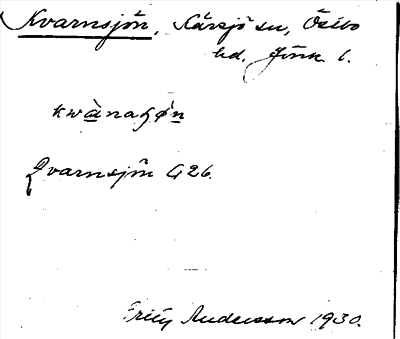 Kvarnsjön, Kävsjö sn, Östbo
hd. Jönk l.
kwànaʃø̀n
Qvarnsjön G 26.
Fritz Andersson 1930.